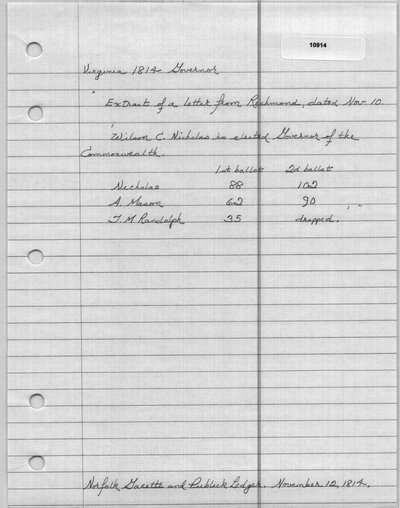 10914
Virginia 1814 Governor
"
Extract of a letter from Richmond, dated Nov 10.
'
Wilson C. Nicholas is elected Governor of the
Commonwealth.
1st ballot 2d ballot
Nicholas 88 102
A. Mason 62 90
T. M Randolph 35 dropped. ' "
Norfolk Gazette and Publick Ledger. November 12, 1814.